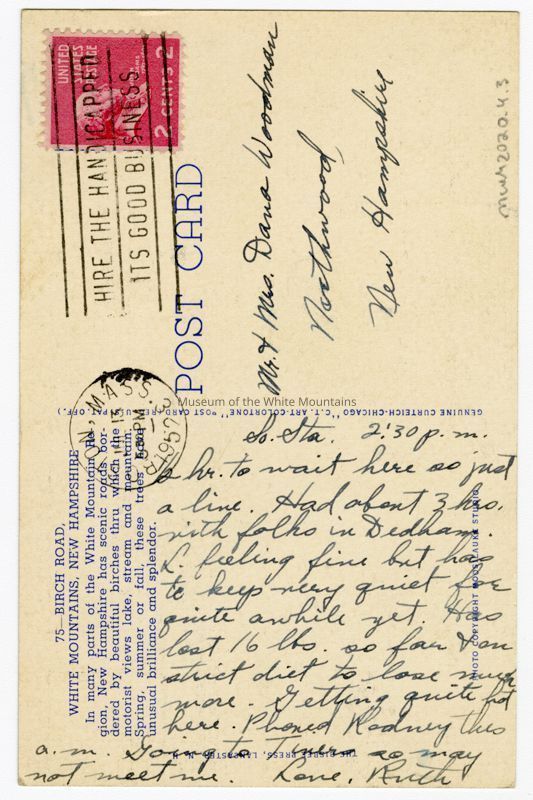 UNITED
STATES
POSTAGE
2 CENTS 2
HIRE THE HANDICAPPED
ITS GOOD BUSINESS
POST CARD
Mr. & Mrs. Dana Woodman
Northwood,
New Hampshire
mwm2020.4.3
Museum of the White Mountains
GENUINE CURTEICH-CHICAGO "C.T. ART-COLORTONE" POST CARD (REG. U.S. PAT. OFF.)
MASS.
PM
1957
75—BIRCH ROAD,
WHITE MOUNTAINS, NEW HAMPSHIRE
In many parts of the White Mountain Re-
gion, New Hampshire has scenic roads bor-
dered by beautiful birches thru which the
motorist views lake, stream and mountain.
Spring, summer or fall, these trees have
unusual brilliance and splendor.
So. Sta. 2:30 p.m.
hr. to wait here so just
a line. Had about 3 hrs.
with folks in Dedham.
L. feeling fine but has
to keep very quiet for
quite awhile yet. Has
lost 16 lbs. so far & on
strict diet to lose much
more. Getting quite hot
here. Phoned Rodney this
a.m. Going to so may
not meet me. Love, Ruth
PHOTO COPYRIGHT STUDIO
PRESS, LANCASTER, N. H.